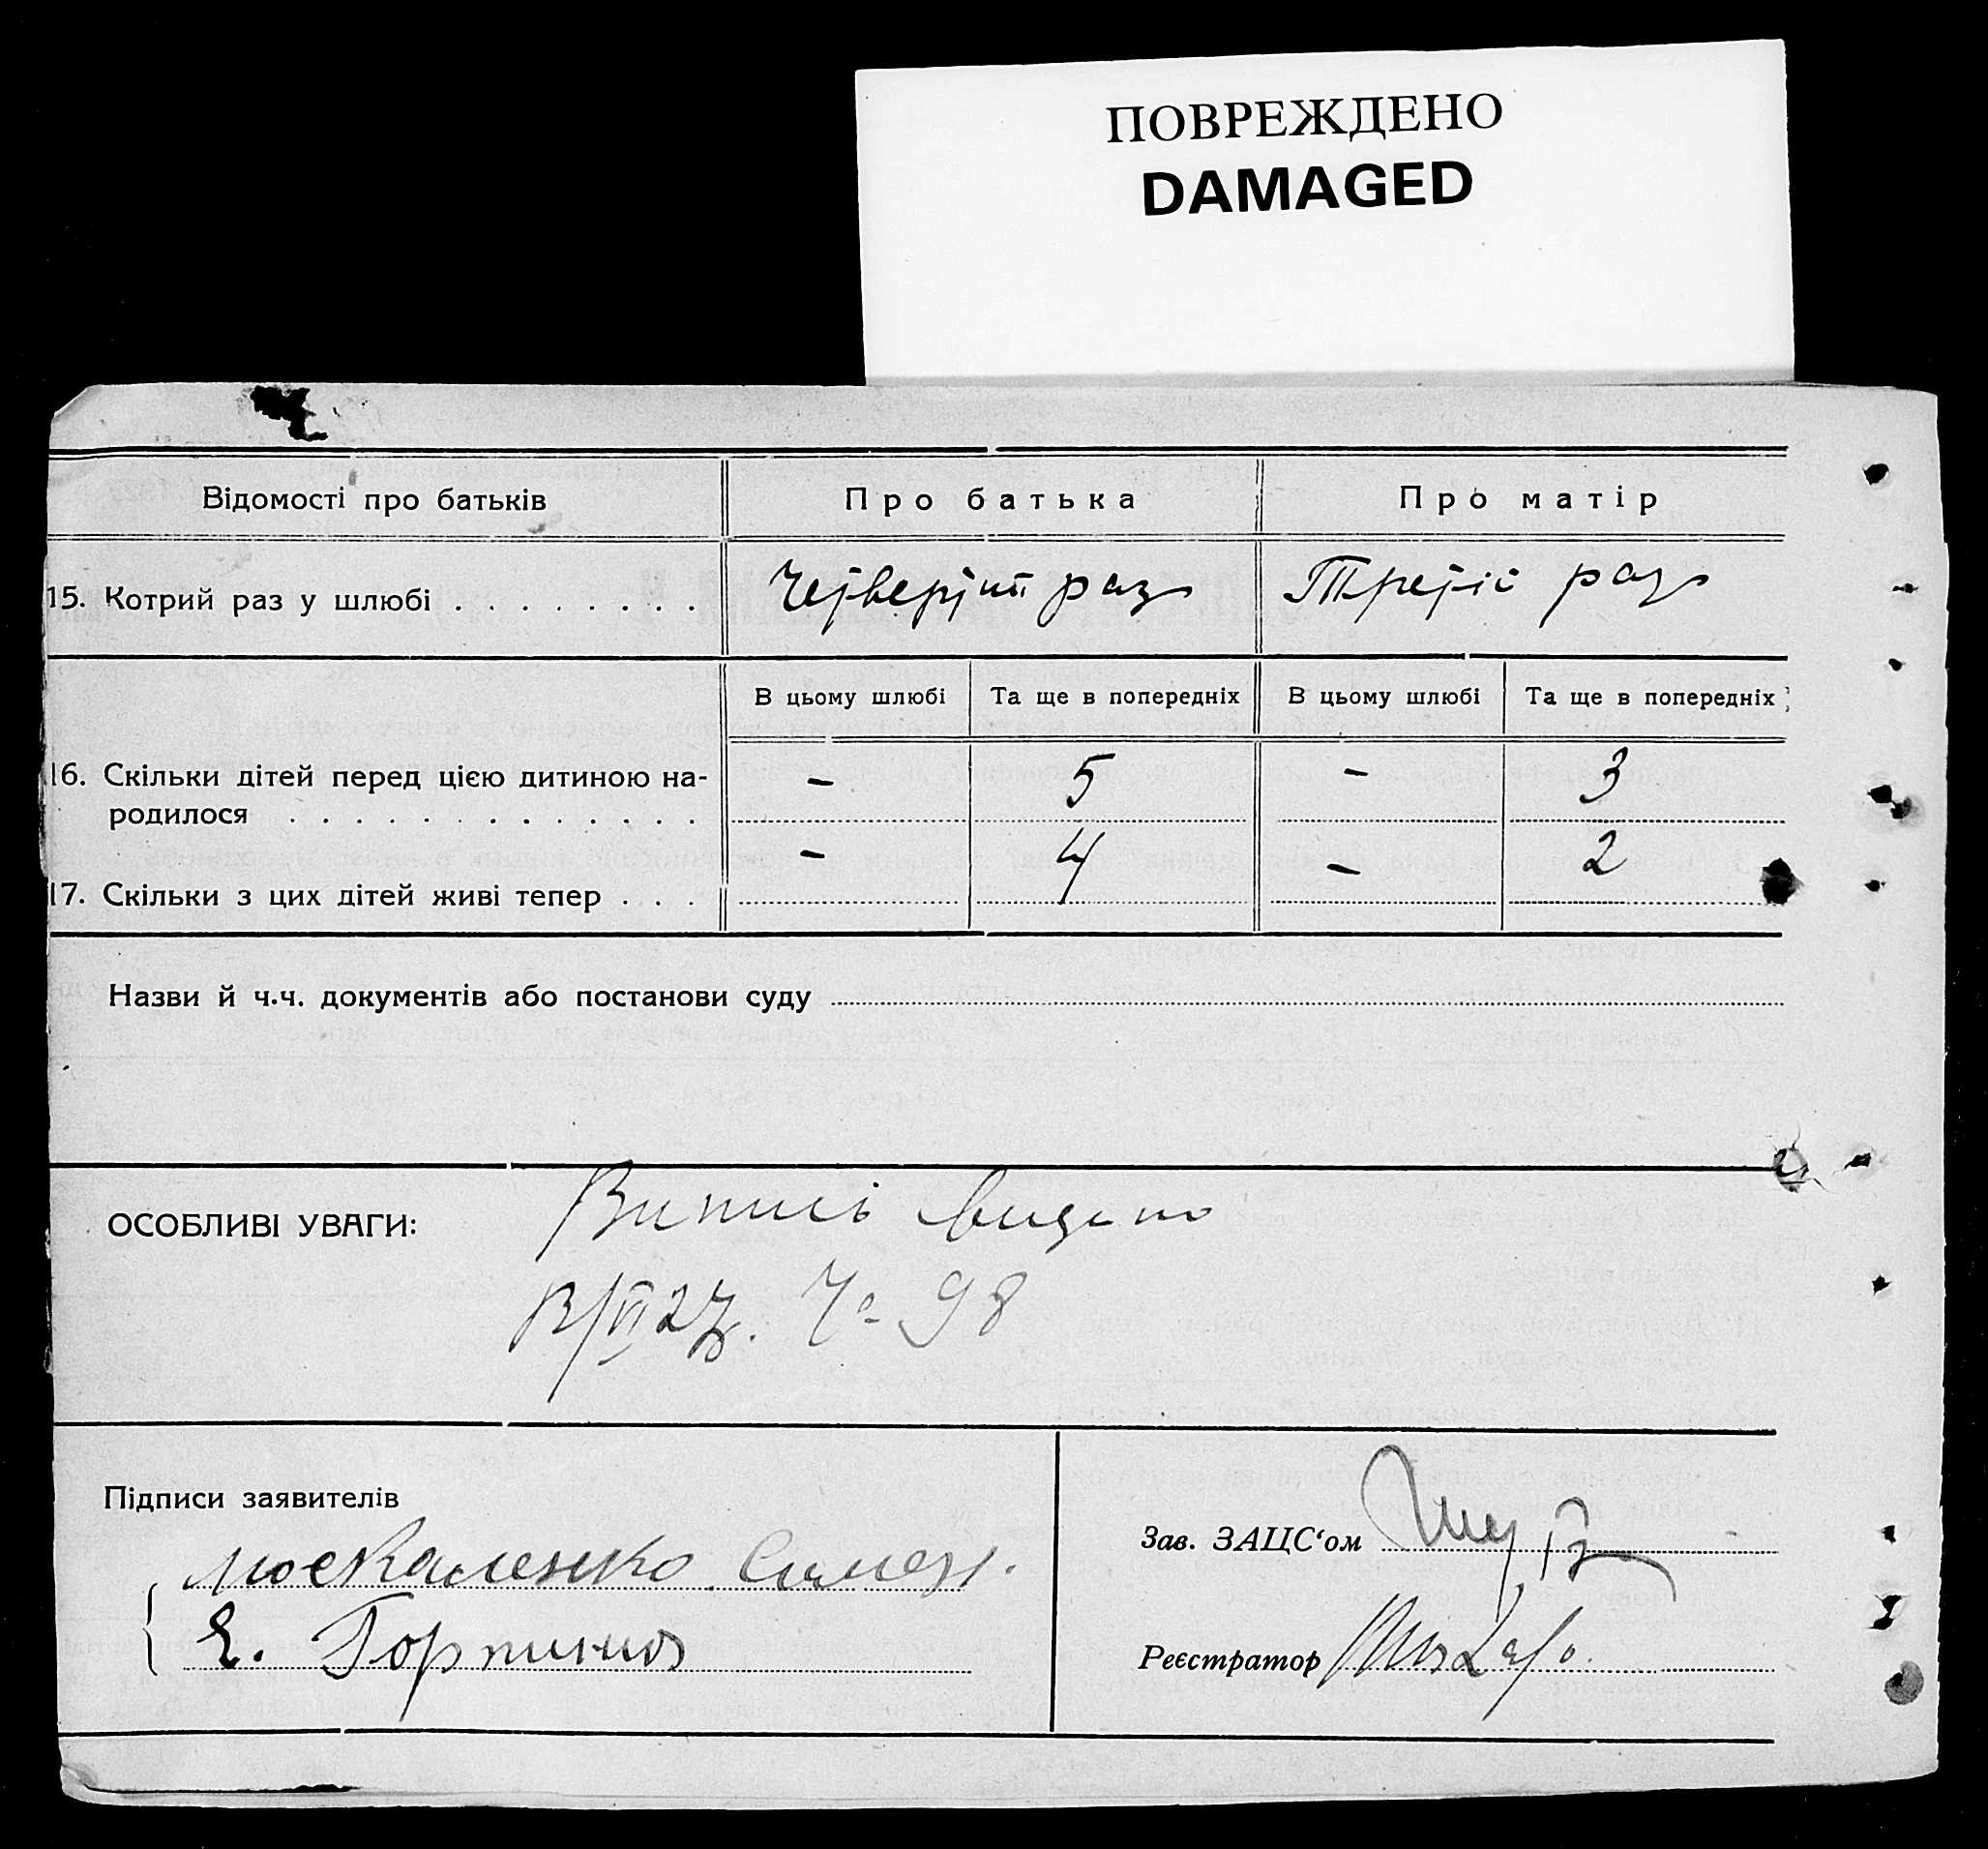 ПОВРЕЖДЕНО
DAMAGED
Відомості про батьків Про батька Про матір
15. Котрий раз у шлюбі . . . . . . . . Четвертий раз Третій раз
В цьому шлюбі Та ще в попередніх В цьому шлюбі Та ще в попередніх
16. Скільки дітей перед цією дитиною на-
родилося . . . . . . . . . . . . . – 5 – 3
17. Скільки з цих дітей живі тепер . . . – 4 – 2
Назви й ч.ч. документів або постанови суду
ОСОБЛИВІ УВАГИ: Випись видано
Ч. 98
Підписи заявителів
Москаленко Симен.
Е. Горпина
Зав. ЗАЦС‘ом
Реєстратор